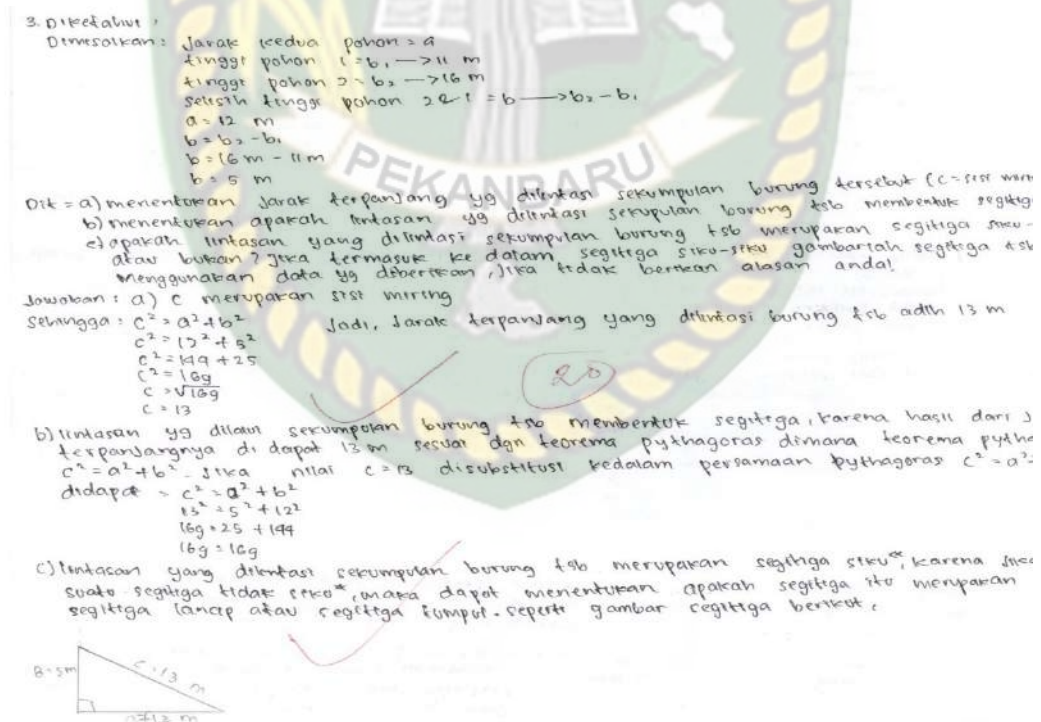 3. Diketahui :
Dimisalkan : Jarak kedua pohon = a
tinggi pohon 1 = b₁ —> 11 m
tinggi pohon 2 = b₂ —> 16 m
selisih tinggi pohon 2 & 1 = b —> b₂ - b₁
a = 12 m
b = b₂ - b₁
b = 16 m - 11 m
b = 5 m
PEKANBARU
Dit = a) menentukan jarak terpanjang yg dilintasi sekumpulan burung tersebut (c = sisi
b) menentukan apakah lintasan yg dilintasi sekupulan burung tsb membentuk
c) apakah lintasan yang dilintasi sekumpulan burung tsb merupakan segitiga siku-
atau bukan? Jika termasuk ke dalam segitiga siku-siku gambarlah segitiga tsb
menggunakan data yg diberikan, jika tidak berikan alasan anda!
Jawaban : a) c merupakan sisi miring
Sehingga : c² = a² + b² Jadi, Jarak terpanjang yang dilintasi burung tsb adlh 13 m
c² = 12² + 5²
c² = 144 + 25
c² = 169
c = √169
c = 13
20
b) lintasan yg dilalui sekumpulan burung tsb membentuk segitiga, karena hasil dari
terpanjangnya di dapat 13 m sesuai dgn teorema pythagoras dimana teorema
c² = a² + b². Jika nilai c = 13 disubstitusi kedalam persamaan pythagoras c² = a²
didapat = c² = a² + b²
13² = 5² + 12²
169 = 25 + 144
169 = 169
c) lintasan yang dilintasi sekumpulan burung tsb merupakan segitiga siku", karena
suatu segitiga tidak siku", maka dapat menentukan apakah segitiga itu merupakan
segitiga lancip atau segitiga tumpul. seperti gambar segitiga berikut.
B = 5m
c = 13 m
12 m